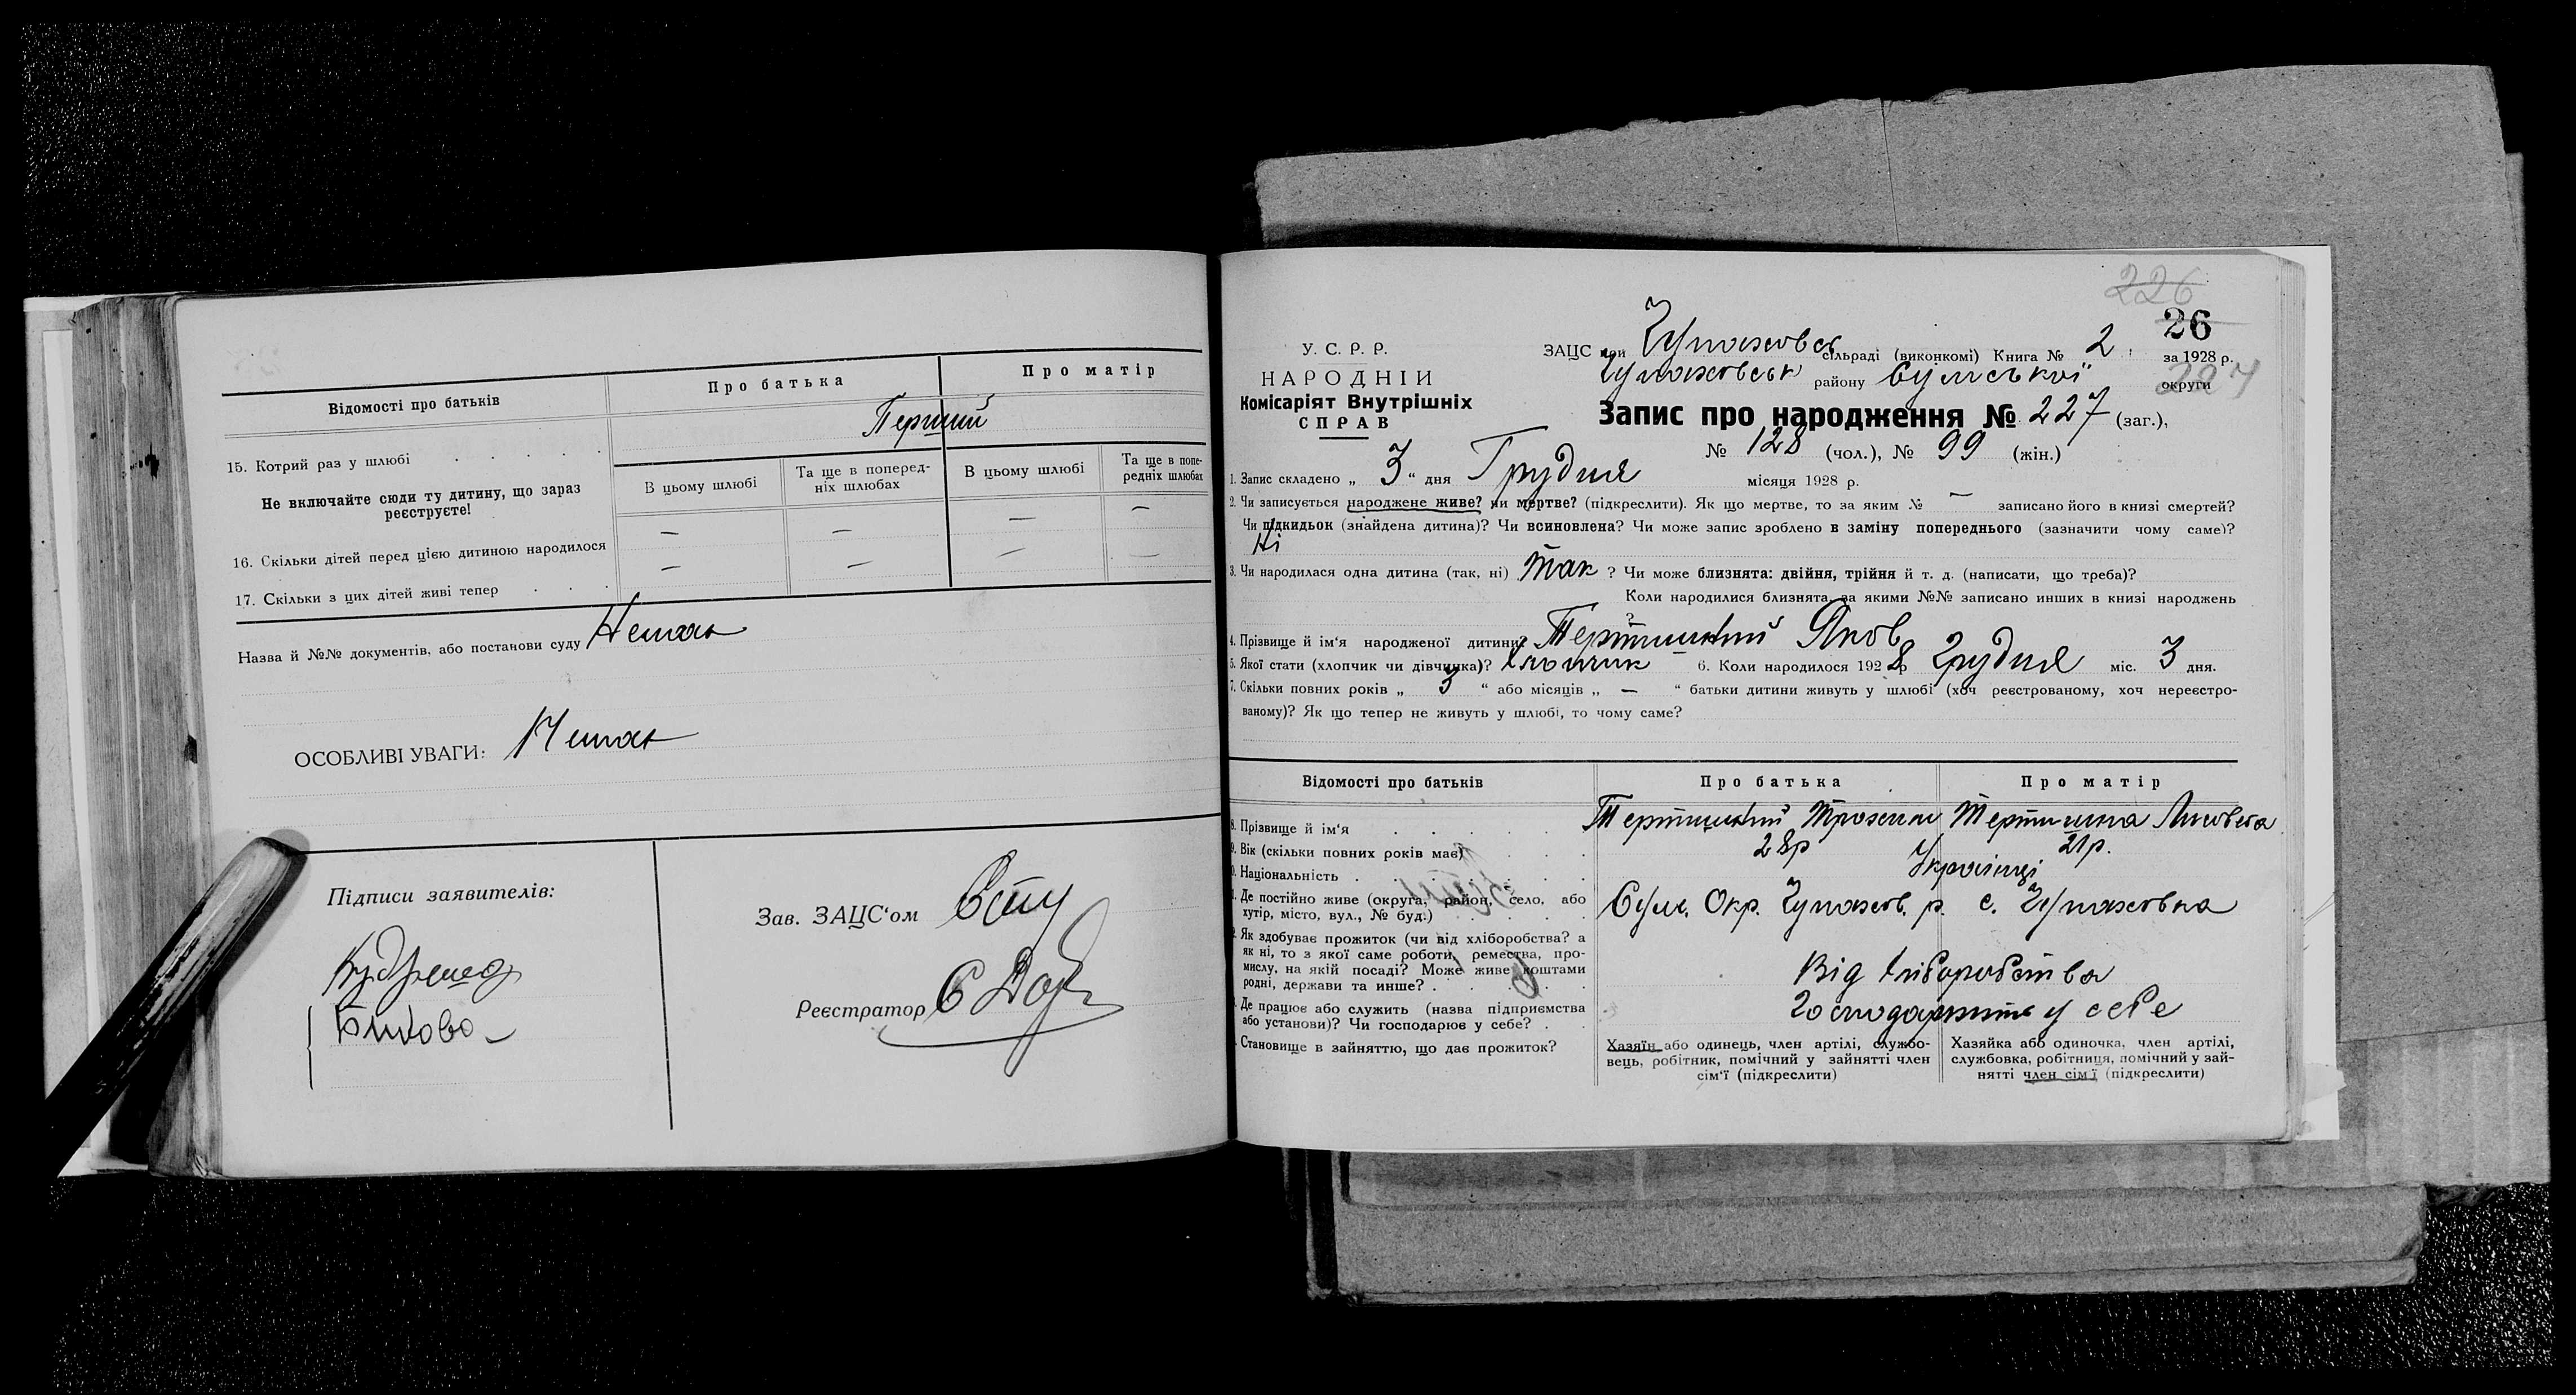 Відомості про батьків
Про батька
Про матір
15. Котрий раз у шлюбі . . . . .
Перший
Не включайте сюди ту дитину, що зараз
реєструєте!
В цьому шлюбі
Та ще в поперед-
ніх шлюбах
В цьому шлюбі
Та ще в попе-
редніх шлюбах
16. Скільки дітей перед цією дитиною народилося
— — — —
17. Скільки з цих дітей живі тепер . . .
— — — —
Назва й №№ документів, або постанови суду Немає
ОСОБЛИВІ УВАГИ: Немає
Підписи заявителів:
Зав. ЗАЦС'ом
Реєстратор
226
26
У. С. Р. Р.
НАРОДНІЙ
Комісаріят Внутрішніх
СПРАВ
ЗАЦС при Чупаховськ сільраді (виконкомі) Книга № 2 за 1928 р.
Чупахівськ району Сумської округи
227
Запис про народження № 227 (заг.),
№ 128 (чол.), № 99 (жін.)
1. Запис складено „ 3 “ дня Грудня місяця 1928 р.
2. Чи записується народжене живе? чи мертве? (підкреслити). Як що мертве, то за яким № — записано його в книзі смертей?
Чи підкидьок (знайдена дитина)? Чи всиновлена? Чи може запис зроблено в заміну попереднього (зазначити чому саме)?
Ні
3. Чи народилася одна дитина (так, ні) Так ? Чи може близнята: двійня, трійня й т. д. (написати, що треба)?
Коли народилися близнята, за якими №№ записано инших в книзі народжень
?
4. Прізвище й ім'я народженої дитини? Тертишний Яков
5. Якої стати (хлопчик чи дівчинка)? Хлопчик 6. Коли народилося 1928 р Грудня міс. 3 дня.
7. Скільки повних років „ 3 “ або місяців „ — “ батьки дитини живуть у шлюбі (хоч реєстрованому, хоч нереєстро-
ваному)? Як що тепер не живуть у шлюбі, то чому саме?
Відомості про батьків
Про батька
Про матір
8. Прізвище й ім'я . . . . . Тертишний Трохим Тертишна
9. Вік (скільки повних років має) . . . 28р 21р.
Національність . . . . . . . Українці
Де постійно живе (округа, район, село, або
хутір, місто, вул., № буд.) . . . .
Сум. Окр. Чупахов. р. с. Чупаховка
Як здобуває прожиток (чи від хліборобства? а
як ні, то з якої саме роботи, ремества, про-
мислу, на якій посаді? Може живе коштами
родні, держави та инше? . . . . .
Від хліборобства
Де працює або служить (назва підприємства
або установи)? Чи господарює у себе? . .
Господарюють у себе
Становище в зайняттю, що дає прожиток?
Хазяїн або одинець, член артілі, службо-
вець, робітник, помічний у зайнятті член
сім'ї (підкреслити)
Хазяйка або одиночка, член артілі,
службовка, робітниця, помічний у зай-
нятті член сім'ї (підкреслити)